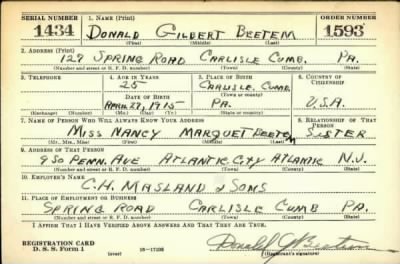 SERIAL NUMBER 1. NAME (Print) ORDER NUMBER
1434 DONALD GILBERT BEETEM 1593
(First) (Middle) (Last)
2. ADDRESS (Print)
129 SPRING ROAD CARLISLE CUMB. PA.
(Number and street or R. F. D. number) (Town) (County) (State)
3. TELEPHONE 4. AGE IN YEARS 5. PLACE OF BIRTH 6. COUNTRY OF CITIZENSHIP
25 CARLISLE, CUMB.
DATE OF BIRTH (Town or county)
APRIL 27, 1915 PA. U.S.A.
(Exchange) (Number) (Mo.) (Day) (Yr.) (State or country)
7. NAME OF PERSON WHO WILL ALWAYS KNOW YOUR ADDRESS 8. RELATIONSHIP OF THAT PERSON
MISS NANCY MARQUET BEETEM SISTER
(Mr., Mrs., Miss) (First) (Middle) (Last)
9. ADDRESS OF THAT PERSON
950 PENN. AVE ATLANTIC CITY ATLANTIC N.J.
(Number and street or R. F. D. number) (Town) (County) (State)
10. EMPLOYER'S NAME
C.H. MASLAND & SONS
11. PLACE OF EMPLOYMENT OR BUSINESS
SPRING ROAD CARLISLE CUMB PA.
(Number and street or R. F. D. number) (Town) (County) (State)
I AFFIRM THAT I HAVE VERIFIED ABOVE ANSWERS AND THAT THEY ARE TRUE.
REGISTRATION CARD
D. S. S. FORM 1 (over) Donald G Beetem
(Registrant's signature)